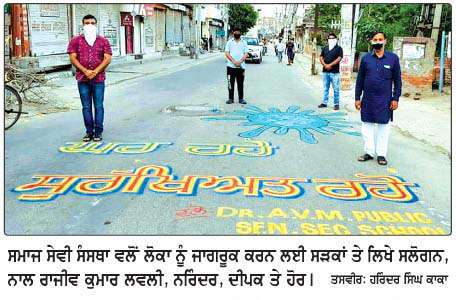 ਘਰ ਰਹੋ
ਸੁਰੱਖਿਅਤ ਰਹੋ
DR. A.V.M. PUBLIC
SEN. SEC. SCHOOL
ਸਮਾਜ ਸੇਵੀ ਸੰਸਥਾ ਵਲੋਂ ਲੋਕਾ ਨੂੰ ਜਾਗਰੂਕ ਕਰਨ ਲਈ ਸੜਕਾਂ ਤੇ ਲਿਖੇ ਸਲੋਗਨ,
ਨਾਲ ਰਾਜੀਵ ਕੁਮਾਰ ਲਵਲੀ, ਨਰਿੰਦਰ, ਦੀਪਕ ਤੇ ਹੋਰ। ਤਸਵੀਰ: ਹਰਿੰਦਰ ਸਿੰਘ ਕਾਕਾ